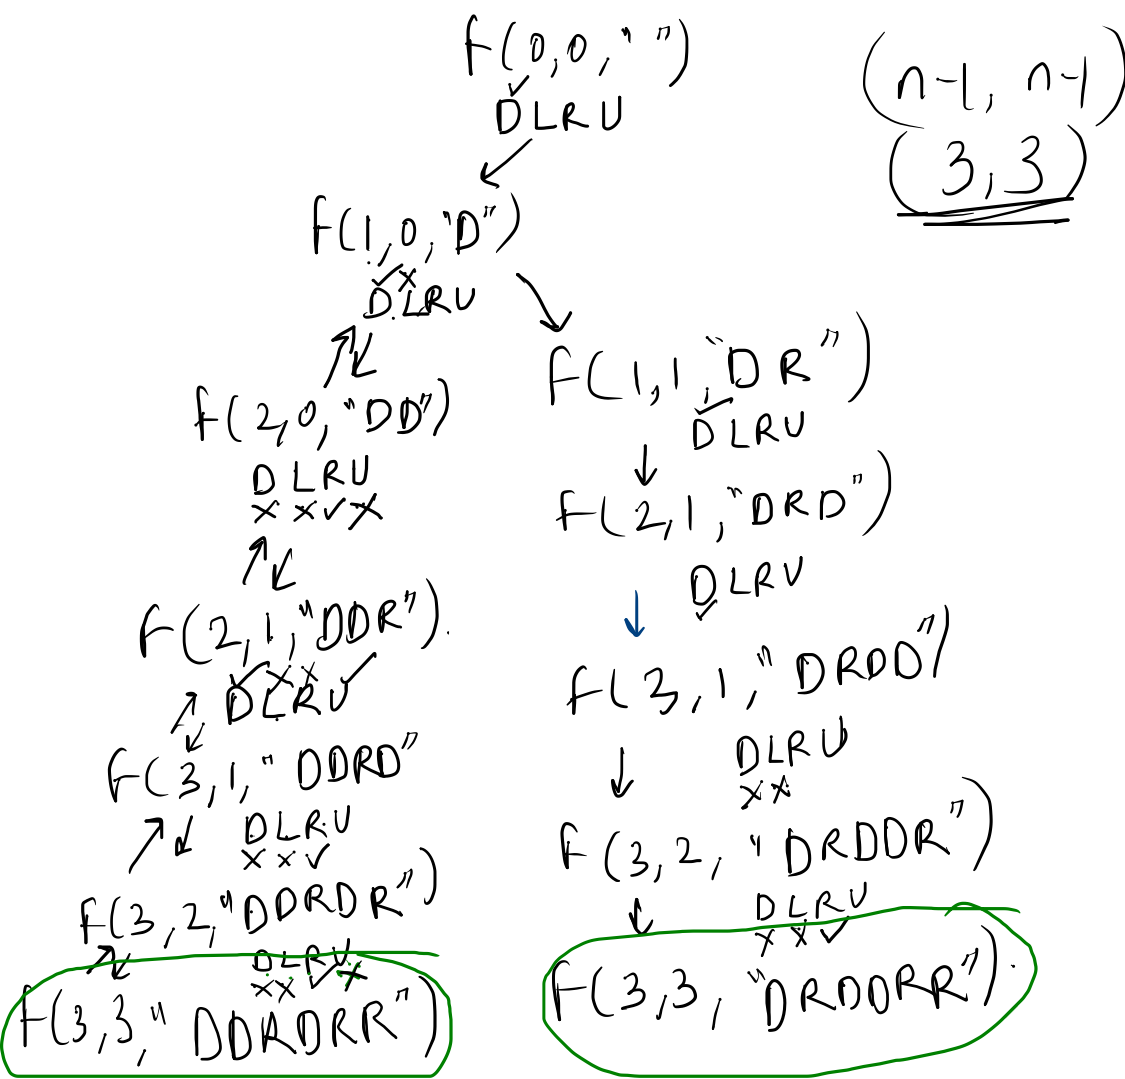 f(0,0," ")
✓
DLRU
(n-1, n-1)
(3,3)
f(1,0,"D")
✓×
DLRU
f(2,0,"DD")
DLRU
××✓×
f(2,1,"DDR").
✓××✓
DLRU
f(3,1,"DDRD"
DLRU
××✓
f(3,2,"DDRDR")
DLRU
××✓×
f(3,3,"DDRDRR")
f(1,1,"DR")
✓
DLRU
f(2,1,"DRD")
DLRU
✓
f(3,1,"DRDD")
DLRU
××
f(3,2,"DRDDR")
DLRU
××✓
f(3,3,"DRDDRR").